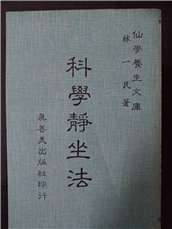 仙學養生文庫
林一民著
科學靜坐法
真善美出版社印行